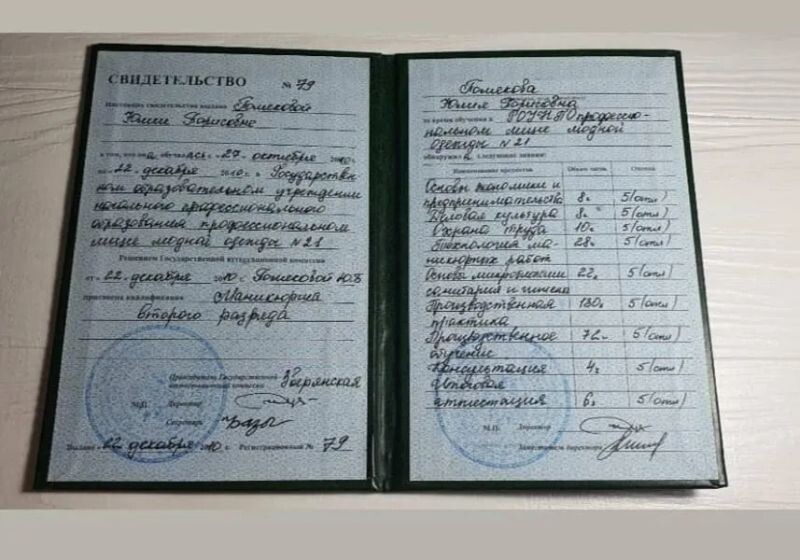 СВИДЕТЕЛЬСТВО № 79
Настоящее свидетельство выдано
Юлии Борисовне
в том, что она обучалась с 27 октября 2010 г.
по 22 декабря 2010 г. в Государствен
ном образовательном учреждении
начального профессионального
образования профессиональном
лицее модной одежды N 21
Решением Государственной аттестационной комиссии
от 22 декабря 2010 г. Ю.Б
присвоена квалификация Маникюрша
второго разряда
Председатель Государственной
аттестационной комиссии
М.П. Директор
Секретарь
Выдано 22 декабря 2010 г. Регистрационный № 79
Юлия Борисовна
за время обучения в профессио-
нальном лицее модной
одежды N 21
обнаружила следующие знания:
Наименование предметов Объем часов Оценка
Основы экономики и
предпринимательства 8ч 5(отл)
Деловая культура 8ч 5(отл)
Охрана труда 10ч 5(отл)
Технология ма-
никюрных работ 28ч 5(отл)
Основы микробиологии
санитария и гигиена 22ч 5(отл)
Производственная
практика 130ч 5(отл)
Производственное
обучение 72ч 5(отл)
Консультация 4ч 5(отл)
Итоговая
аттестация 6ч 5(отл)
М.П. Директор
Заместитель директора